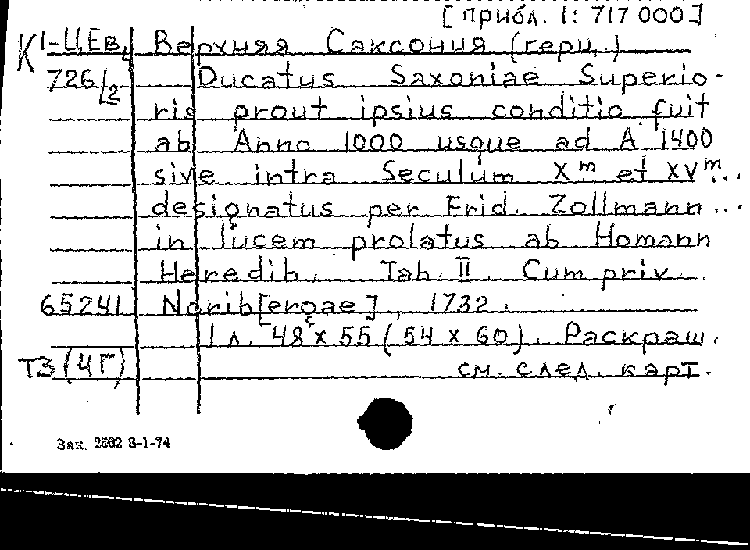 [прибл. 1: 717 000]
К 1-ЦЕв. Верхняя Саксония (герц.)
726/2 Ducatus Saxoniae Superio-
ris prout ipsius conditio fuit
ab Anno 1000 usque ad A 1400
sive intra Seculum Xm et XVm...
designatus per Frid. Zollmann...
in lucem prolatus ab Homann
Heredib. Tab. II. Cum priv.
65241 Norib[ergae], 1732.
1 л. 48 x 55 (54 x 60). Раскраш.
ТЗ(ЧГ) см. след. карт.
Зак. 2682 8-1-74